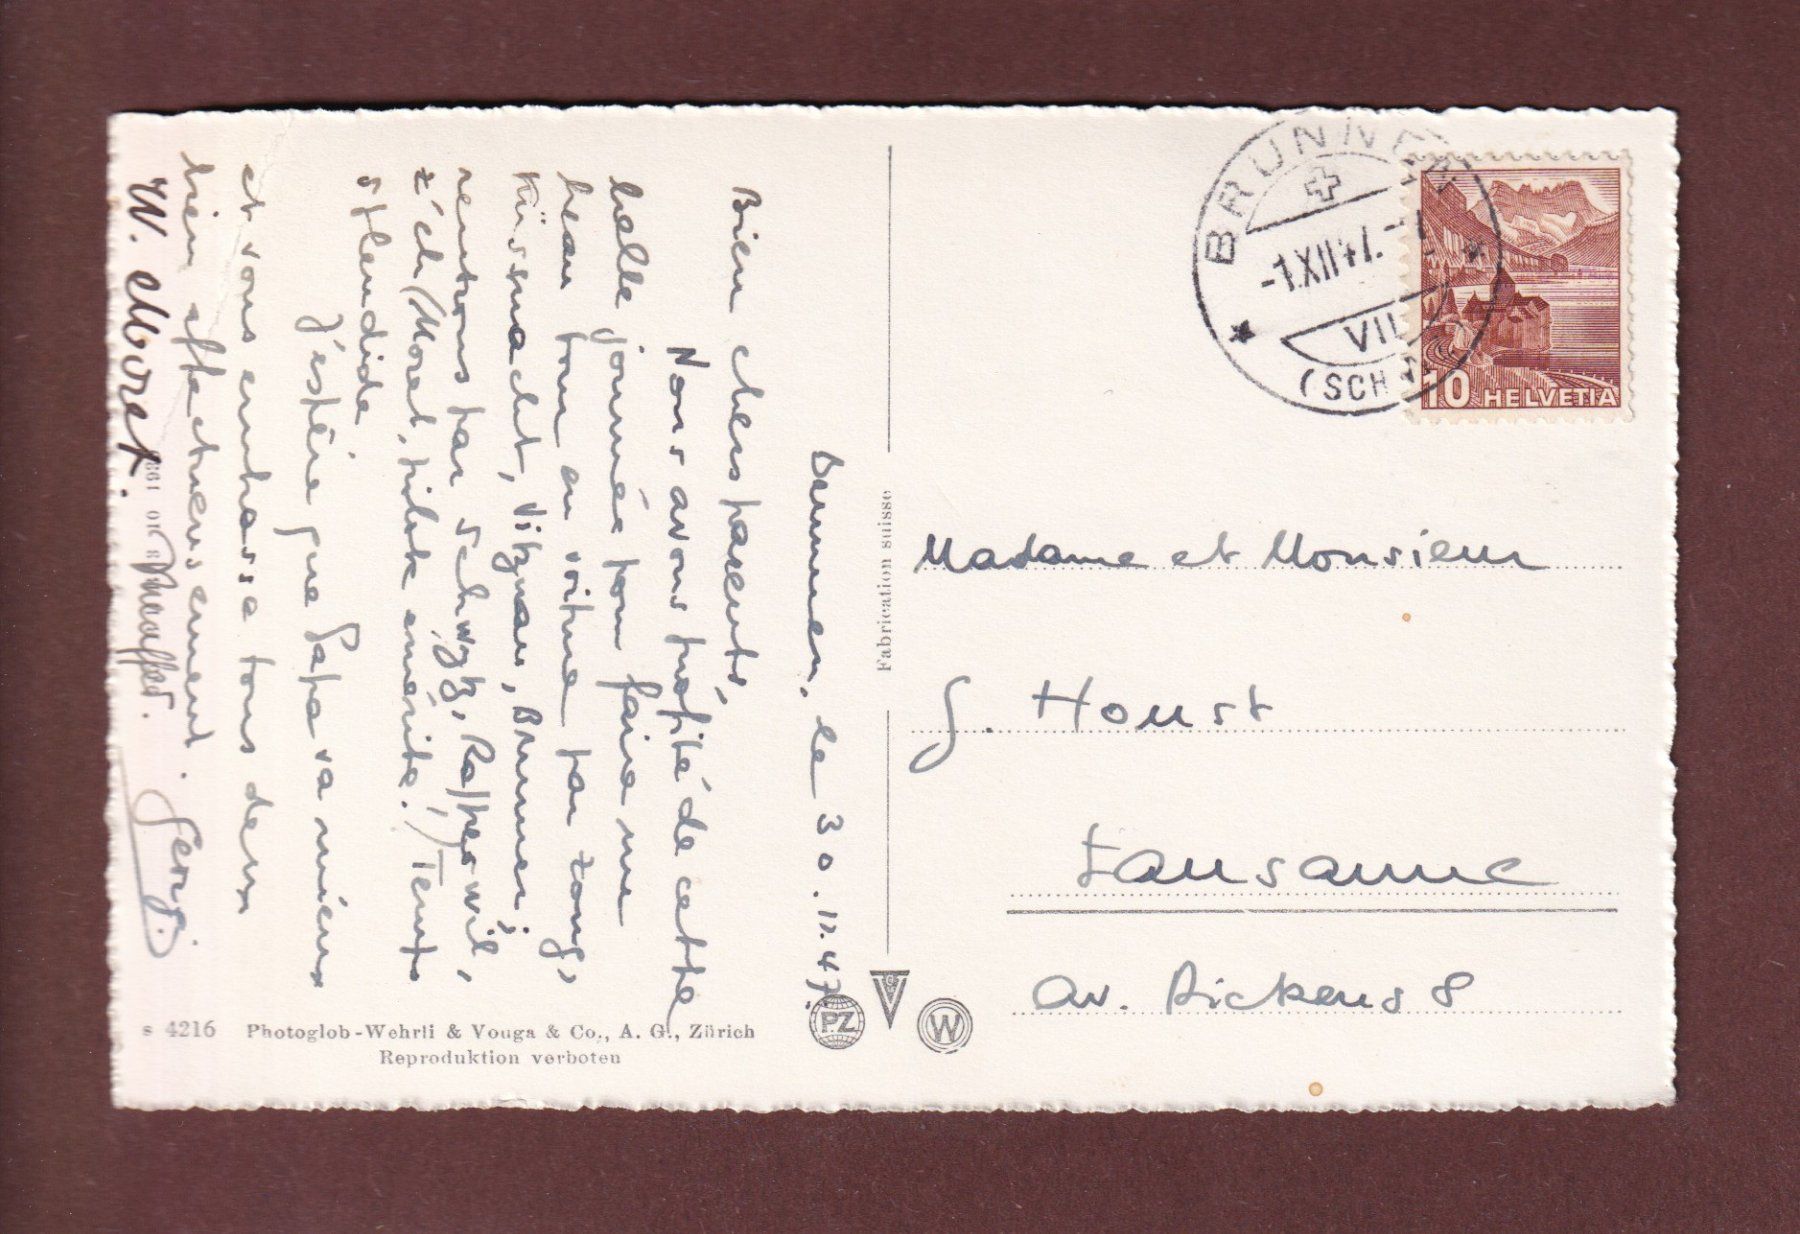 Brunnen, le 30.11.47.
Bien chers parents,
Nous avons profité de cette
belle journée pour faire un
beau tour en voiture par Zoug,
Küssnacht, Vitznau, Brunnen;
rentrons par Schwyz, Rapperswil,
Z'ch (Moret, pilote émérite!) Temps
splendide.
J'espère que Papa va mieux
et vous embrasse tous deux
bien affectueusement. Georg.
W. Moret.
Fabrication suisse
s 4216 Photoglob-Wehrli & Vouga & Co., A. G., Zürich
Reproduktion verboten
PZ
W
BRUNNEN
-1.XII.47.-7
VII
(SCH
10 HELVETIA
Madame et Monsieur
G. Houst
Lausanne
Av. Dickens 8